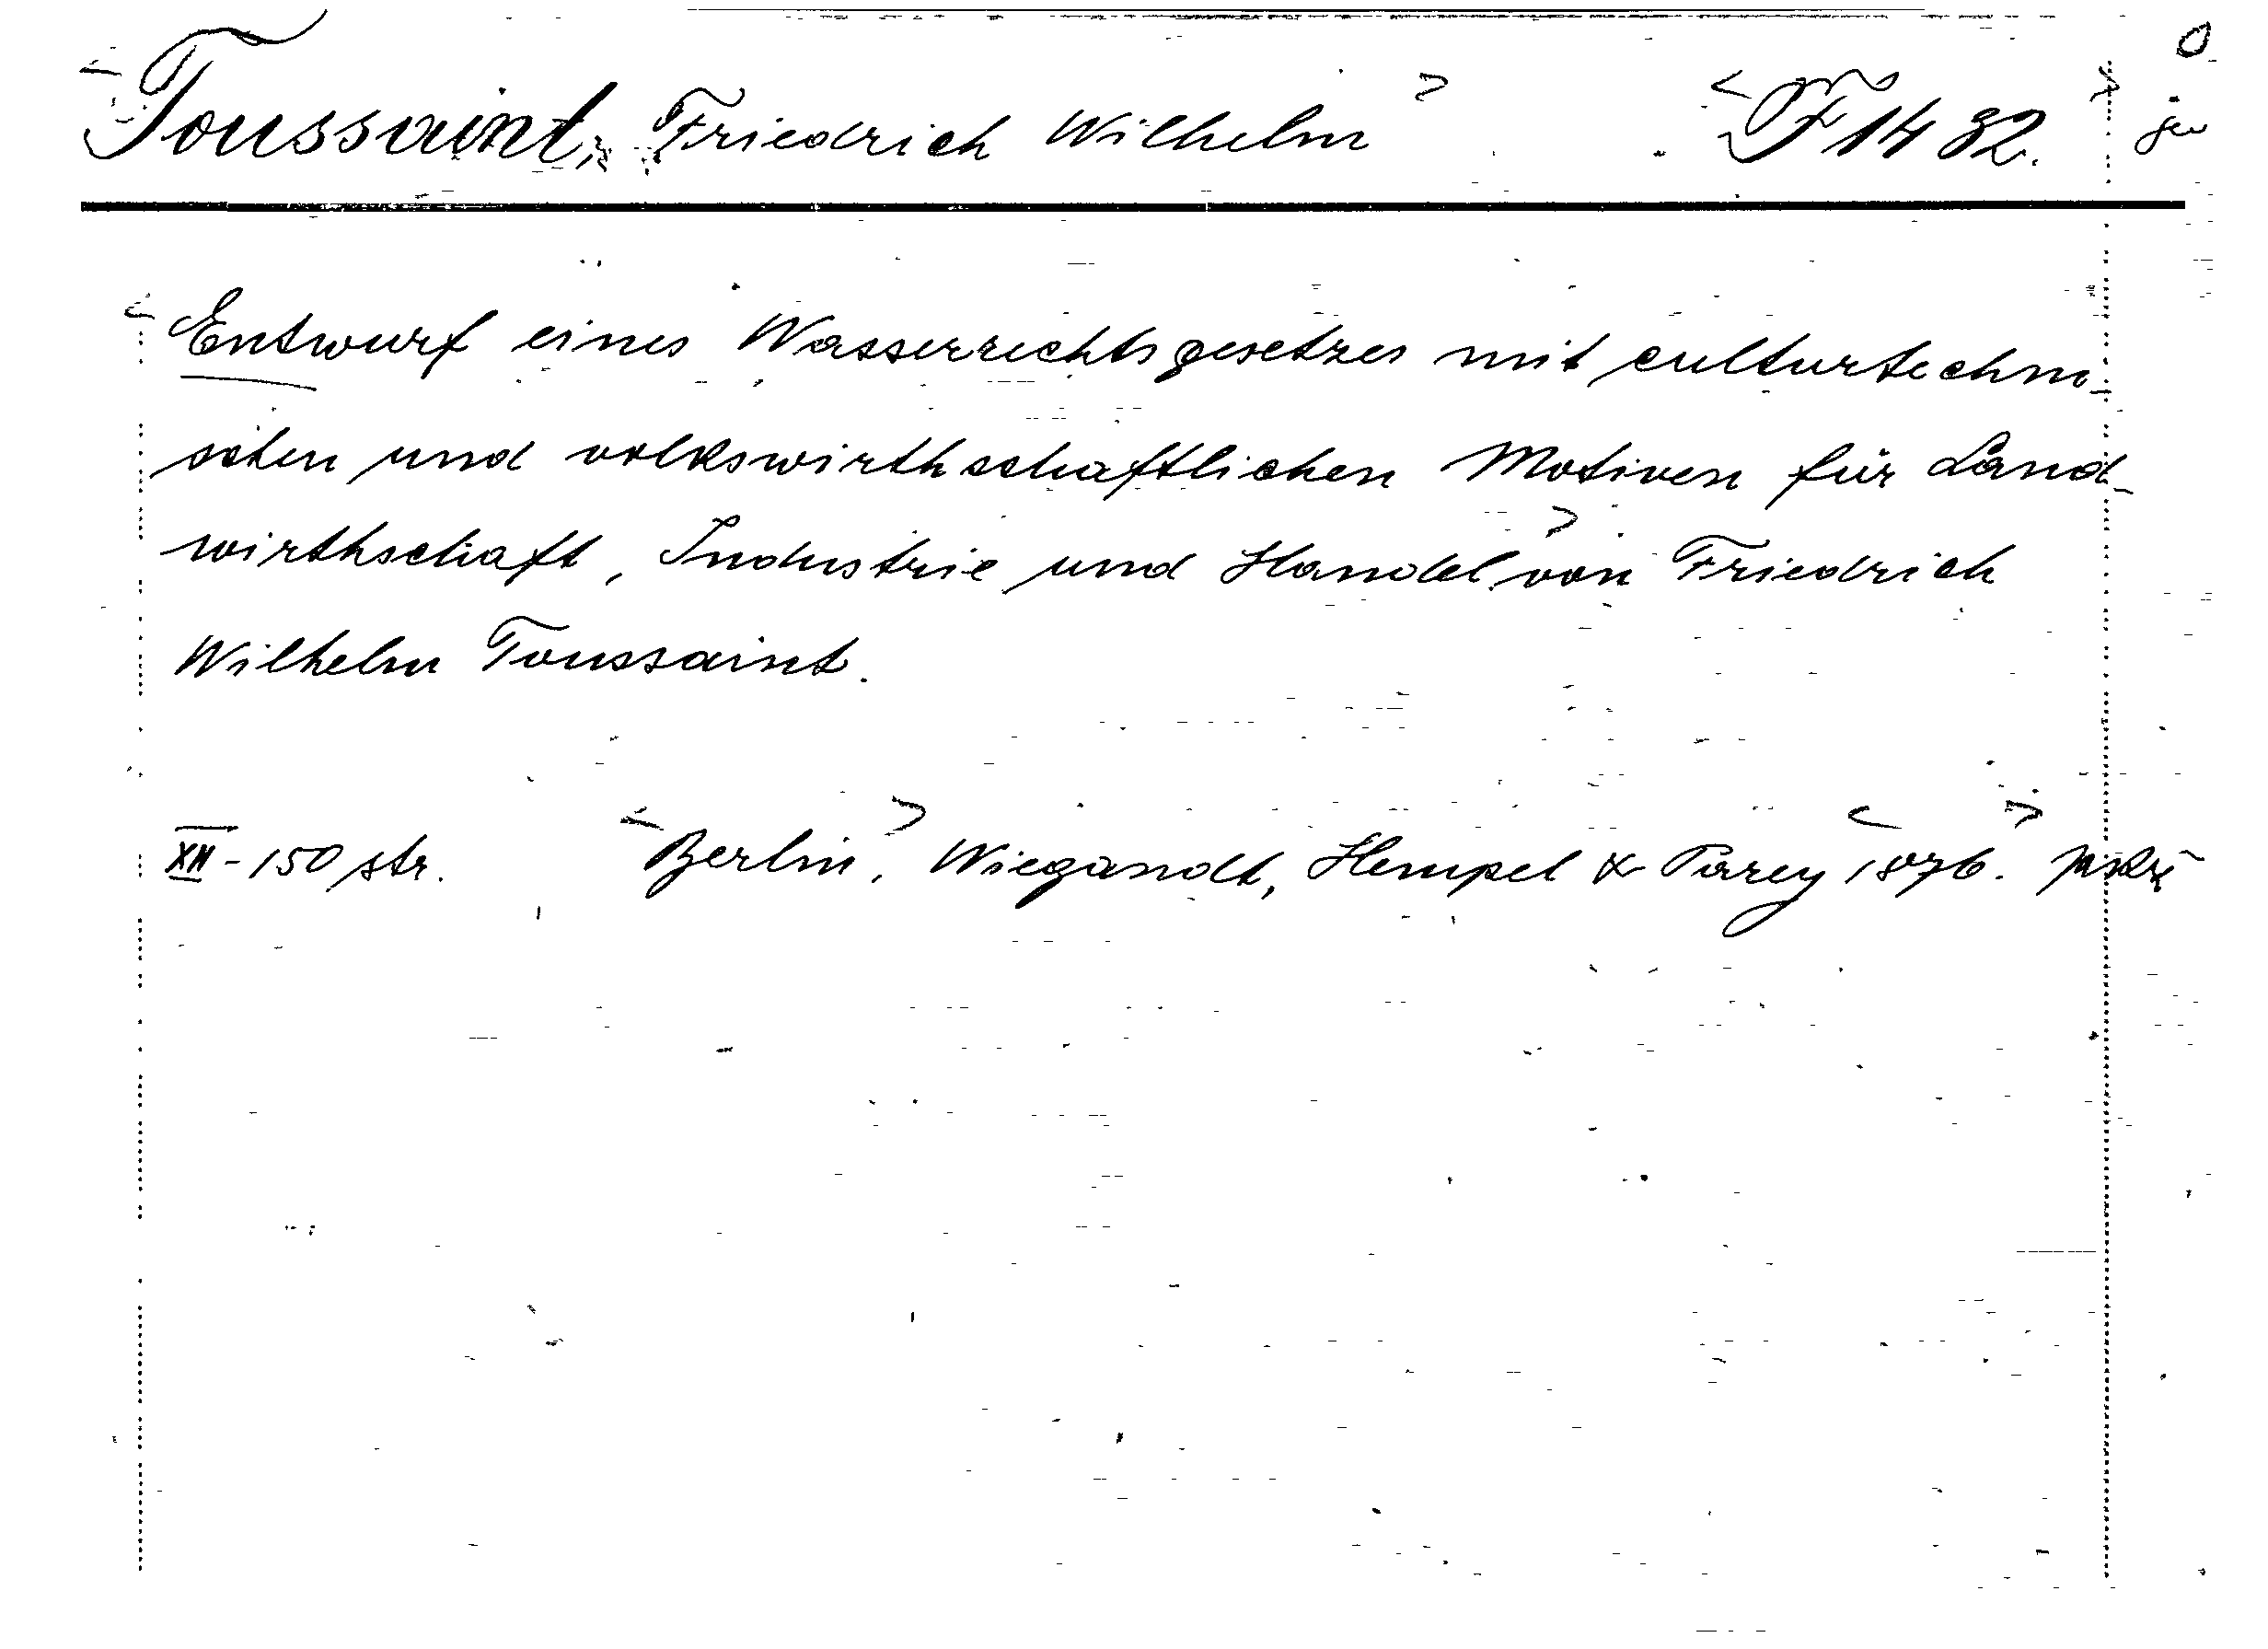 Toussaint, Friedrich Wilhelm F 1432.
Entwurf eines Wasserrechtsgesetzes mit culturtechni-
schen und volkswirthschaftlichen Motiven für Land-
wirthschaft, Industrie und Handel von Friedrich
Wilhelm Toussaint.
XII - 150 str. Berlin, Wiegandt, Hempel & Parey 1876.